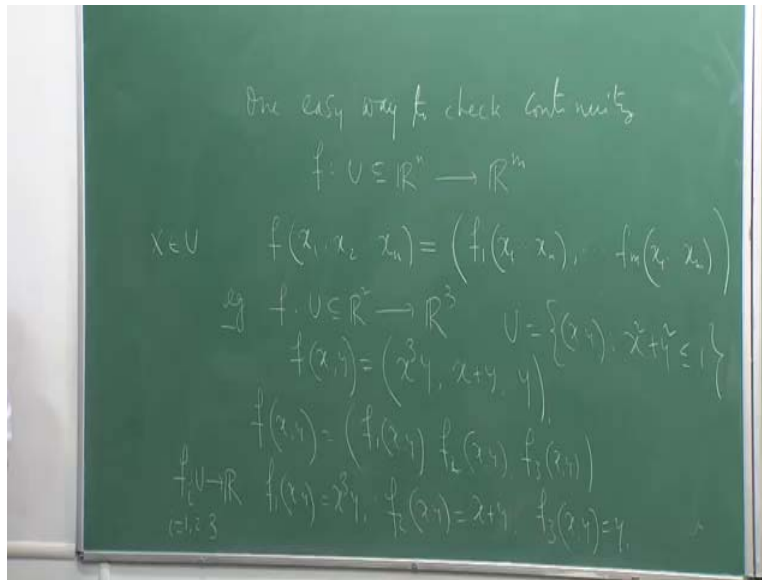 One easy way to check continuity
f: U ⊆ ℝⁿ → ℝᵐ
X ∈ U f(x₁, x₂ xₙ) = (f₁(x₁ xₙ), fₘ(x₁ xₙ))
eg f: U ⊆ ℝ² → ℝ³ U = {(x,y): x²+y² ≤ 1}
f(x,y) = (x³y, x+y, y)
f(x,y) = (f₁(x,y) f₂(x,y) f₃(x,y))
fᵢ: U → ℝ f₁(x,y) = x³y, f₂(x,y) = x+y, f₃(x,y) = y.
i=1,2 3